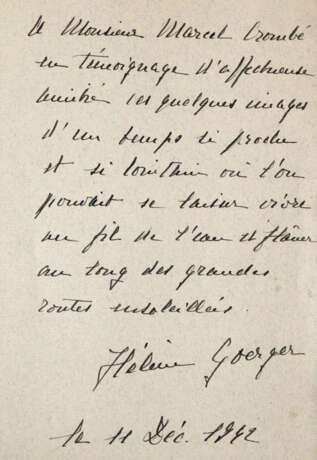 A Monsieur Marcel Crombé
en témoignage d'affectueuse
amitié ces quelques images
d'un temps si proche
et si lointain où l'on
pouvait se laisser vivre
au fil de l'eau et flâner
au long des grandes
routes ensoleillées.
Hélène Goerger
le 11 Déc. 1942